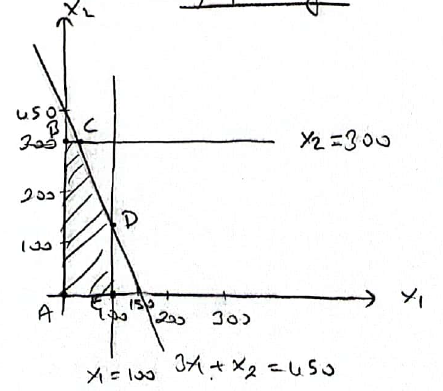 x₂
450
B C
300 x₂ = 300
200
D
100
A E 100 150 200 300 x₁
x₁ = 100 3x₁ + x₂ = 450